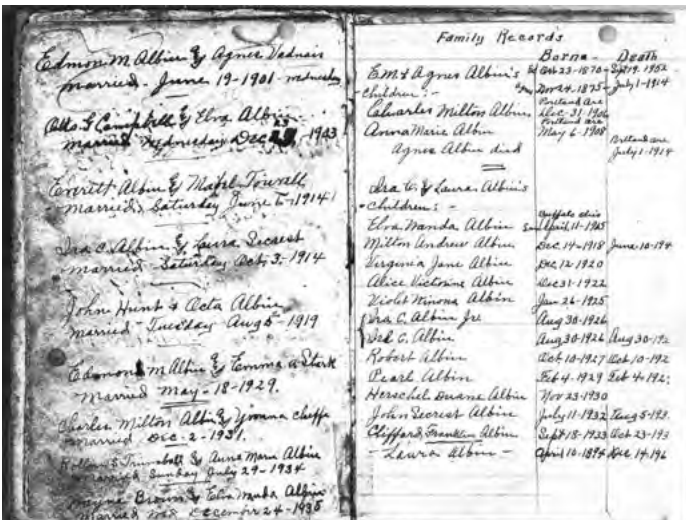 Edmon M Albin & Agnes Vadnais
married - June 19 - 1901 - wednesday
Otto G Campbell & Elva Albin
married Wednesday Dec 23 - 1903
Everett Albin & Mabel
Married Saturday June 6 - 1914
Ira C. Albin & Laura Secrest
married - Saturday Oct, 3, - 1914
John Hunt & Octa Albin
Married Tuesday Aug 5 - 1919
Edmond M Albin & Emma A Stark
Married May - 18 - 1929.
Charles Milton Albin & Yvonna
married Dec - 2 - 1931.
& Anna Marie Albin
married Sunday July 29 - 1934
Wayne Brown & Elva Wanda Albin
married Wed December 24 - 1935
Family Records
Borne - Death
E M & Agnes Albin's Ed Oct 23 - 1870 - Sept 19 - 1952
Children : - Nov 24 - 1875 - July 1 - 1914
Portland
Charles Milton Albin Dec - 31 - 1906
Portland
Anna Marie Albin May 6 - 1908
Agnes Albin died Portland
July 1 - 1914
Ira C. & Laura Albin's
Children : -
Buffalo
Elva Wanda Albin April 11 - 1915
Milton Andrew Albin Dec 14 - 1918 June 10 - 194
Virginia Jane Albin Dec, 12 - 1920
Alice Victorine Albin Dec 31 - 1922
Violet Winona Albin Jan 26 - 1925
Ira C. Albin Jr. Aug 30 - 1926
Ird C. Albin Aug 30 - 1926 Aug 30 - 192
Robert Albin Oct 10 - 1927 Oct 10 - 192
Pearl Albin Feb 4 - 1929 Feb 4 - 192
Herschel Duane Albin Nov 23 - 1930
John Secrest Albin July 11 - 1932 Aug 5 - 193
Clifford, Franklin Albin Sept 18 - 1933 Oct 23 - 193
- Laura Albin - April 10 - 1894 Dec 14 - 196